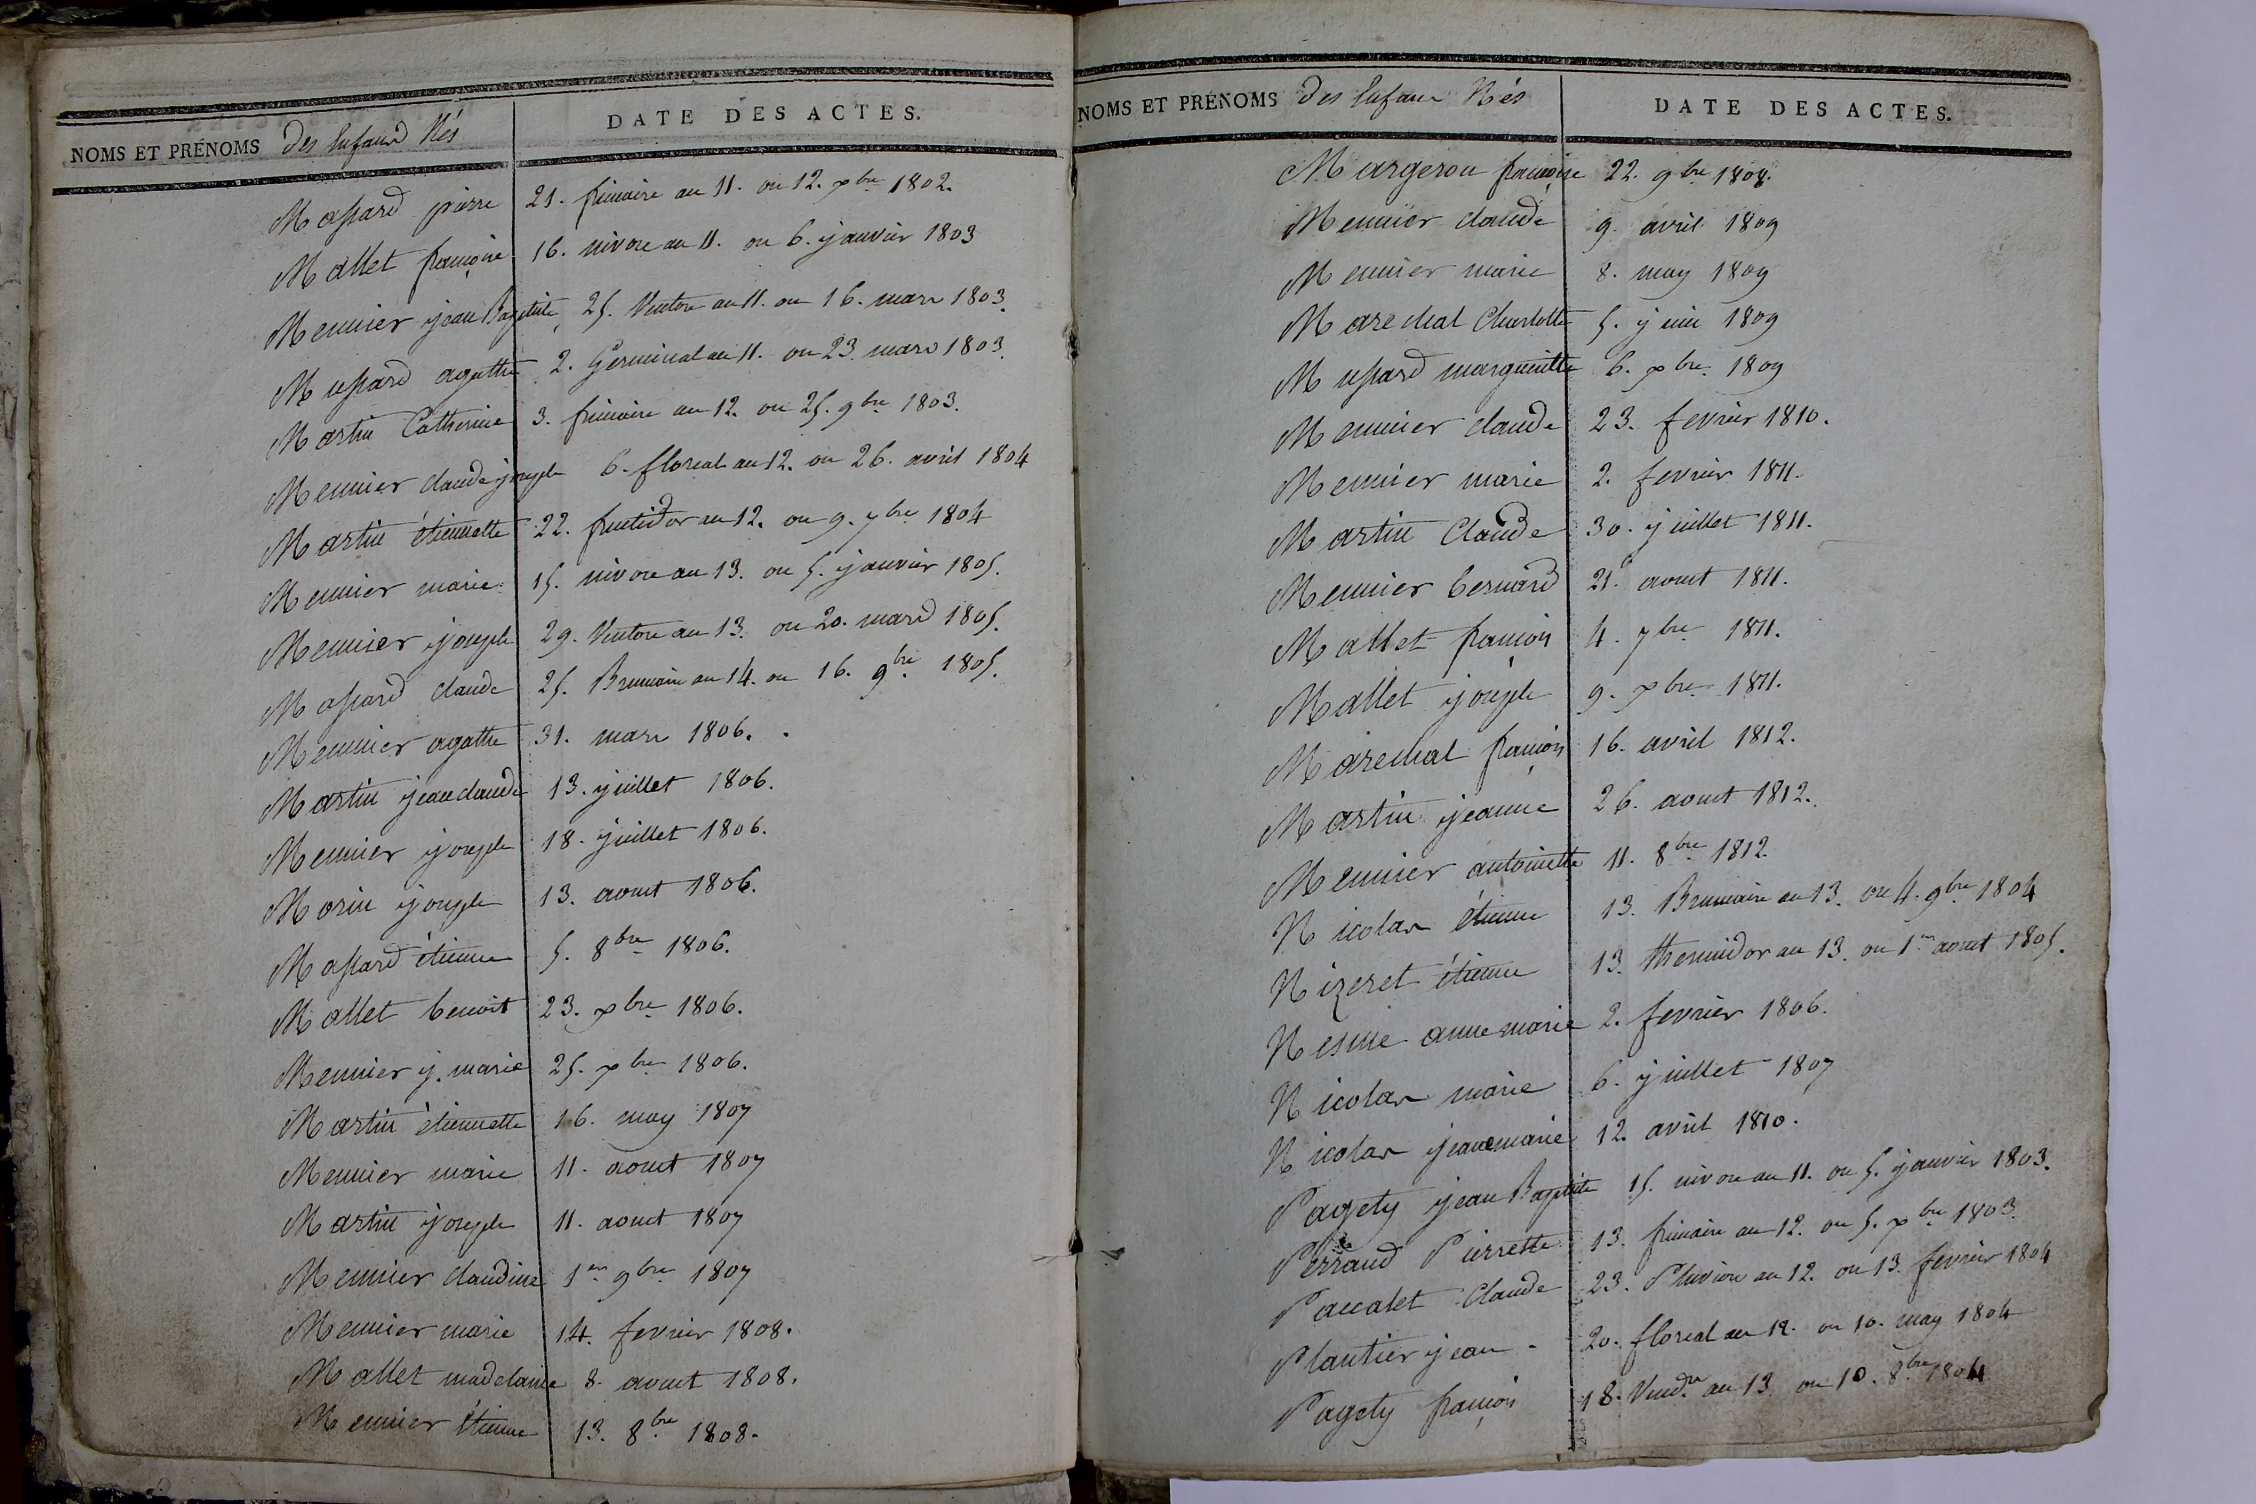 NOMS ET PRÉNOMS des Enfans Nés
DATE DES ACTES.
Massard pierre 21. frimaire an 11. ou 12. xbre 1802.
Mallet françoise 16. nivose an 11. ou 6. janvier 1803
Meunier jean Baptiste 25. Ventose an 11. ou 16. mars 1803.
Mussard agathe 2. Germinal an 11. ou 23. mars 1803.
Martin Catherine 3. frimaire an 12. ou 25. 9bre 1803.
Meunier claude joseph 6. floreal an 12. ou 26. avril 1804
Martin étiennette 22. fructidor an 12. ou 9. 7bre 1804
Meunier marie 15. nivose an 13. ou 5. janvier 1805.
Meunier joseph 29. Ventose an 13. ou 20. mars 1805.
Massard claude 25. Brumaire an 14. ou 16. 9bre 1805.
Meunier agathe 31. mars 1806.
Martin jean claude 13. juillet 1806.
Meunier joseph 18. juillet 1806.
Morin joseph 13. aout 1806.
Massard étienne 5. 8bre 1806.
Mallet benoit 23. xbre 1806.
Meunier j. marie 25. xbre 1806.
Martin étiennette 16. may 1807
Meunier marie 11. aout 1807
Martin joseph 11. aout 1807
Meunier claudine 1er 9bre 1807
Meunier marie 14. fevrier 1808.
Mallet madelaine 8. aout 1808.
Meunier étienne 13. 8bre 1808.
NOMS ET PRÉNOMS des Enfans Nés
DATE DES ACTES.
Margeron françoise 22. 9bre 1808.
Meunier claude 9. avril 1809
Meunier marie 8. may 1809
Marechal Charlotte 5. juin 1809
Mussard margueritte 6. xbre 1809
Meunier claude 23. fevrier 1810.
Meunier marie 2. fevrier 1811.
Martin Claude 30. juillet 1811.
Meunier bernard 21. aout 1811.
Mallet françois 4. 7bre 1811.
Mallet joseph 9. xbre 1811.
Marechal françois 16. avril 1812.
Martin jeanne 26. aout 1812.
Meunier antoinette 11. 8bre 1812.
Nicolas étienne 13. Brumaire an 13. ou 4. 9bre 1804
Nizeret étienne 13. thermidor an 13. ou 1er aout 1805.
Nesme anne marie 2. fevrier 1806.
Nicolas marie 6. juillet 1807
Nicolas jeanemarie 12. avril 1810.
Pagety jean Baptiste 15. nivose an 11. ou 5. janvier 1803.
Perraud Pierrette 13. frimaire an 12. ou 5. xbre 1803.
Paccalet Claude 23. Pluviose an 12. ou 13. fevrier 1804
Plantier jean 20. floreal an 12. ou 10. may 1804
Pagety françois 18. Vendre an 13 ou 10. 8bre 1804